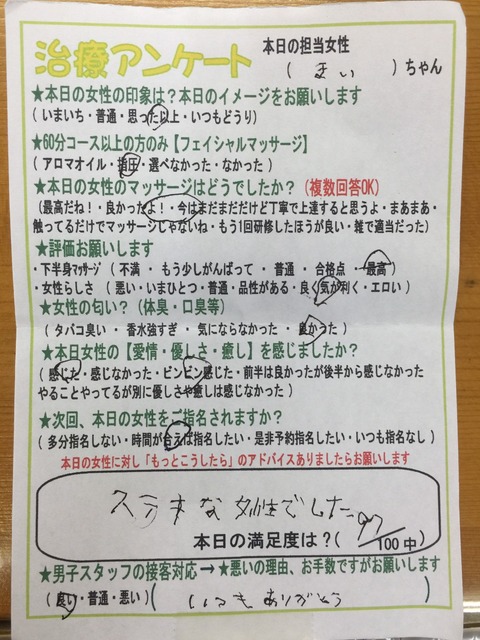 治療アンケート
本日の担当女性
( まい )ちゃん
★本日の女性の印象は?本日のイメージをお願いします
(いまいち・普通・思った以上・いつもどうり)
★60分コース以上の方のみ【フェイシャルマッサージ】
(アロマオイル・指圧・選べなかった・なかった)
★本日の女性のマッサージはどうでしたか?(複数回答OK)
(最高だね!・良かったよ!・今はまだまだだけど丁寧で上達すると思うよ・まあまあ・
触ってるだけでマッサージじゃないね・もう1回研修したほうが良い・雑で適当だった)
★評価お願いします
・下半身マッサージ(不満・もう少しがんばって・普通・合格点・最高)
・女らしさ(悪い・いまひとつ・普通・品性がある・良く気が利く・エロい)
★女性の匂い?(体臭・口臭等)
(タバコ臭い・香水強すぎ・気にならなかった・良かった)
★本日女性の【愛情・優しさ・癒し】を感じましたか?
(感じた・感じなかった・ビンビン感じた・前半は良かったが後半から感じなかった
やることやってるが別に優しさや癒しは感じなかった)
★次回、本日の女性をご指名されますか?
(多分指名しない・時間が合えば指名したい・是非予約指名したい・いつも指名なし)
本日の女性に対し「もっとこうしたら」のアドバイスありましたらお願いします
ステキな女性でした
本日の満足度は?(97/100中)
★男子スタッフの接客対応→★悪いの理由、お手数ですがお願いします
(良い・普通・悪い)(いつもありがとう)